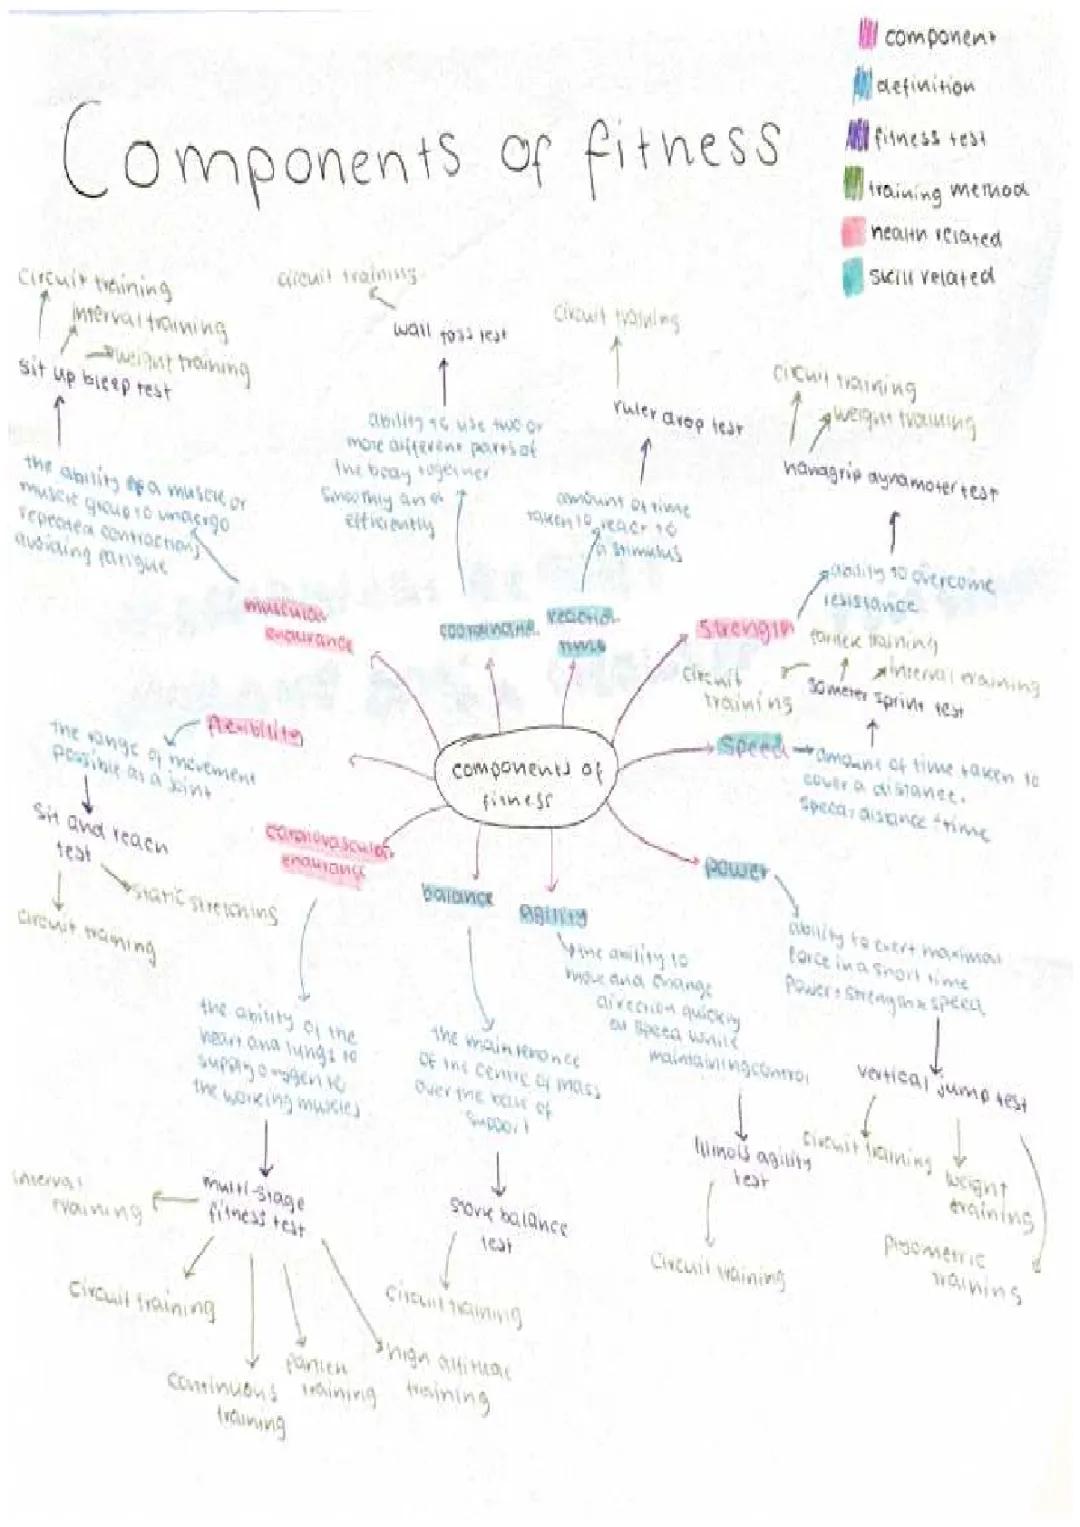 component
definition
fitness test
training method
health related
skill related
Components of fitness
circuit training
interval training
weight training
sit up bleep test
the ability of a muscle or
muscle group to undergo
repeated contractions
avoiding fatigue
muscular
endurance
circuit training
wall toss test
ability to use two or
more different parts of
the body together
smoothly and
efficiently
coordination
circuit training
ruler drop test
amount of time
taken to react to
a stimulus
reaction
time
circuit training
weight training
handgrip dynamoter test
ability to overcome
resistance
strength
fartlek training
interval training
circuit
training
30meter sprint test
speed
amount of time taken to
cover a distance.
speed= distance ÷ time
components of
fitness
flexibility
the range of movement
possible at a joint
sit and reach
test
static stretching
circuit training
cardiovascular
endurance
the ability of the
heart and lungs to
supply oxygen to
the working muscles
multi-stage
fitness test
interval
training
circuit training
continuous
training
fartlek
training
high altitude
training
balance
the maintenance
of the centre of mass
over the base of
support
stork balance
test
circuit training
agility
the ability to
move and change
direction quickly
at speed while
maintaining control
Illinois agility
test
circuit training
power
ability to exert maximal
force in a short time
Power = strength x speed
vertical jump test
circuit training
weight
training
plyometric
training